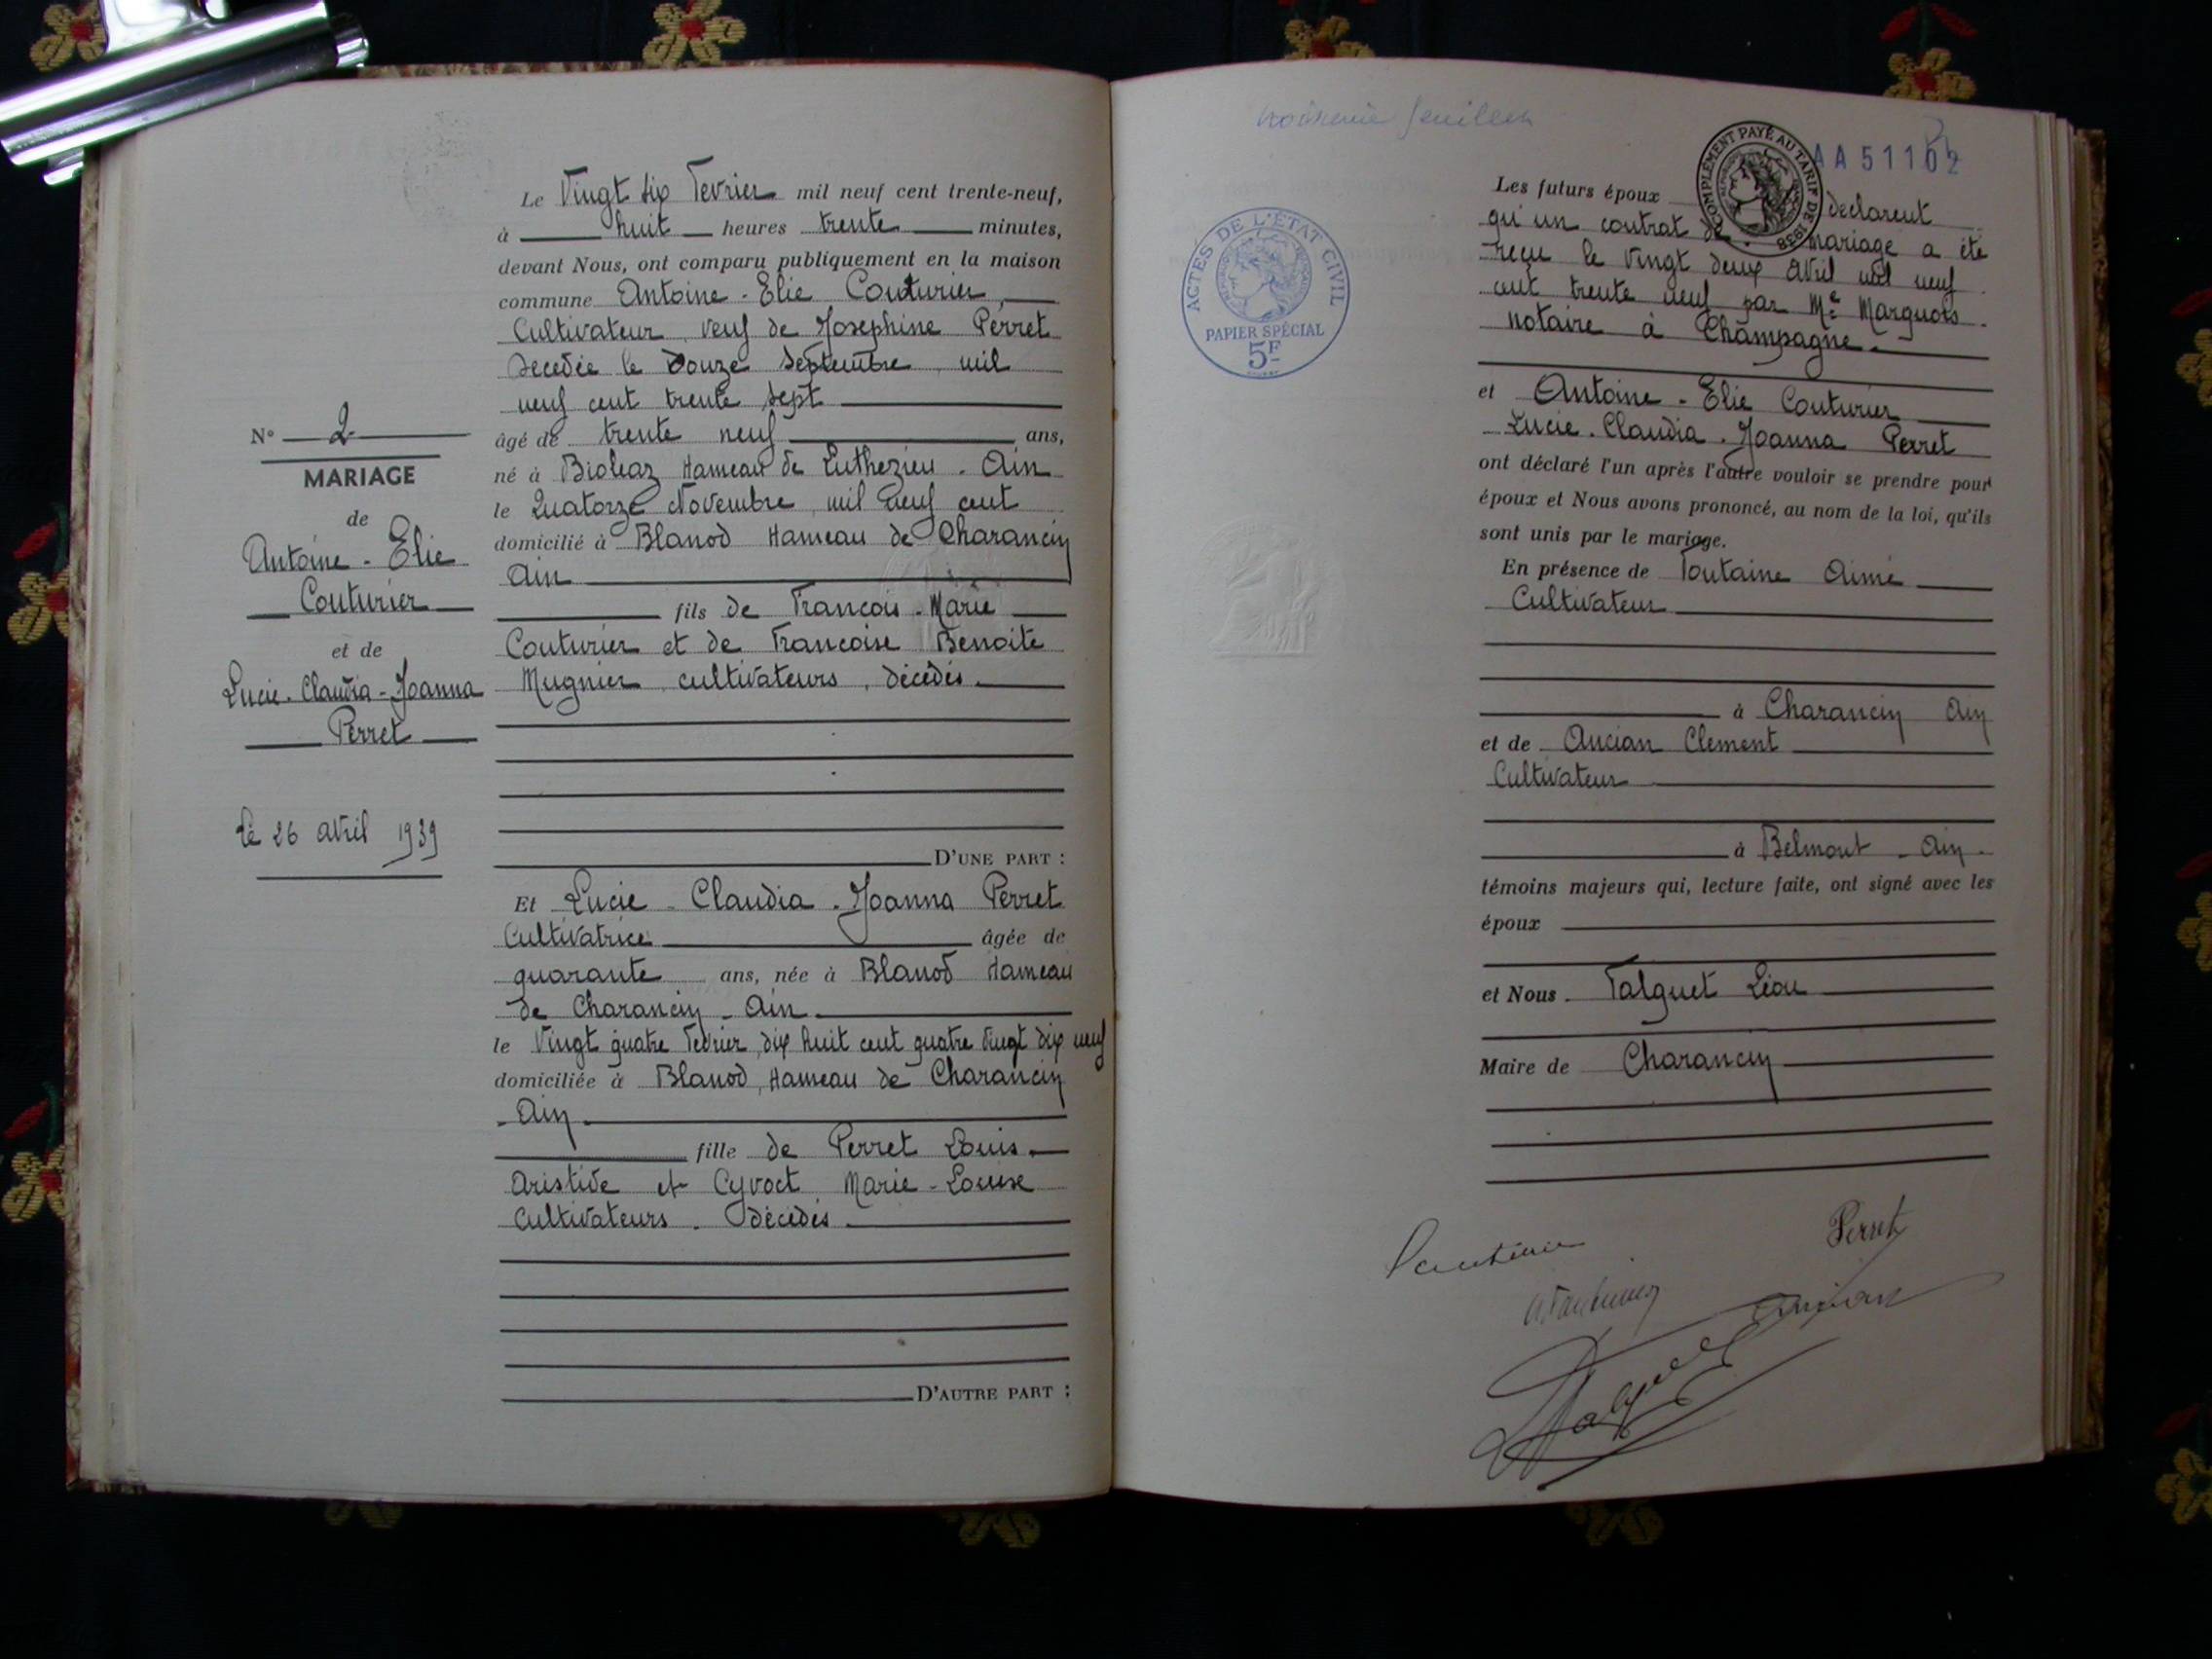 N° 2
MARIAGE
de
Antoine - Elie
Couturier
et de
Lucie - Claudia - Joanna
Perret
Le 26 avril 1939
Le Vingt six Fevrier mil neuf cent trente-neuf,
à huit heures trente minutes,
devant Nous, ont comparu publiquement en la maison
commune Antoine - Elie Couturier,
Cultivateur, veuf de Josephine Perret
Decedée le Douze Septembre mil
neuf cent trente sept
âgé de trente neuf ans,
né à Bioleaz Hameau de Luthezieu - Ain
le Quatorze Novembre mil neuf cent
domicilié à Blanod Hameau de Charancin
Ain
fils de Francois - Marie
Couturier et de Francoise Benoite
Mugnier cultivateurs, décédés.
D'UNE PART :
Et Lucie - Claudia - Joanna Perret
Cultivatrice âgée de
quarante ans, née à Blanod Hameau
de Charancin - Ain.
le Vingt quatre Fevrier, dix huit cent quatre vingt dix neuf
domiciliée à Blanod, Hameau de Charancin
- Ain
fille de Perret Louis
Aristide et Cyvoct Marie - Louise
Cultivateurs. décédés.
D'AUTRE PART :
feuillet
AA 51102
COMPLÉMENT PAYÉ AU TARIF DE 1938
ACTES DE L'ÉTAT CIVIL
RÉPUBLIQUE FRANÇAISE
PAPIER SPÉCIAL
5F
Les futurs époux déclarent
qu'un contrat de mariage a été
reçu le vingt deux Avril mil neuf
cent trente neuf par Me Marquois
notaire à Champagne.
et Antoine - Elie Couturier
Lucie - Claudia - Joanna Perret
ont déclaré l'un après l'autre vouloir se prendre pour
époux et Nous avons prononcé, au nom de la loi, qu'ils
sont unis par le mariage.
En présence de Fontaine Aimé
Cultivateur
à Charancin Ain
et de Ancian Clement
Cultivateur
à Belmont - Ain.
témoins majeurs qui, lecture faite, ont signé avec les
époux
et Nous. Falquet Léon
Maire de Charancin
Couturier
Perret
Ancian
Falquet